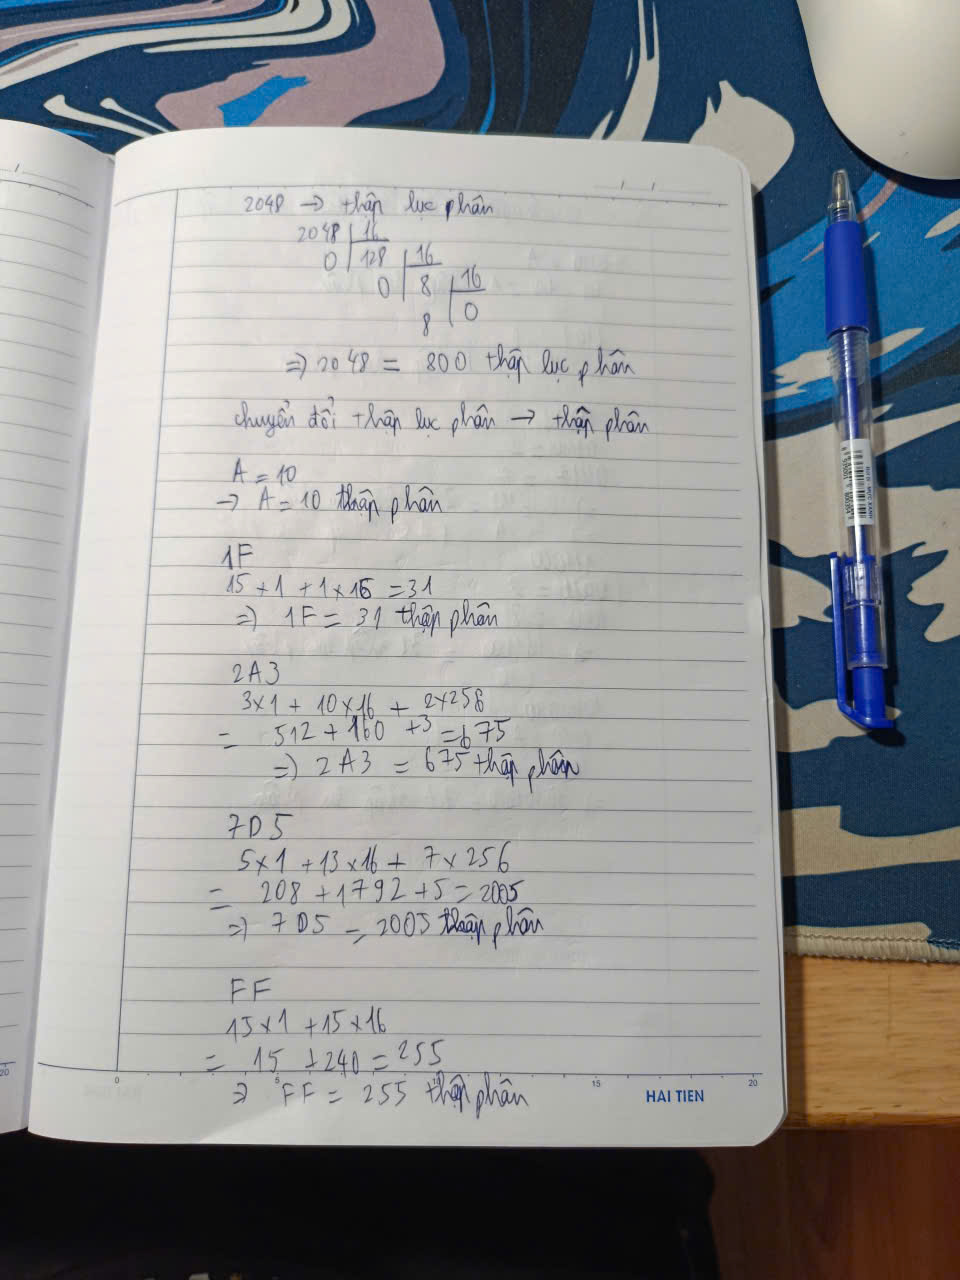 2048 → thập lục phân
2048 16
0 128 16
0 8 16
8 0
⇒ 2048 = 800 thập lục phân
chuyển đổi thập lục phân → thập phân
A = 10
→ A = 10 thập phân
1F
15 × 1 + 1 × 16 = 31
⇒ 1F = 31 thập phân
2A3
3×1 + 10×16 + 2×256
= 512 + 160 + 3 = 675
⇒ 2A3 = 675 thập phân
7D5
5×1 + 13×16 + 7×256
= 208 + 1792 + 5 = 2005
⇒ 7D5 = 2005 thập phân
FF
15×1 + 15×16
= 15 + 240 = 255
⇒ FF = 255 thập phân
0 5 10 15 20
HAI TIEN